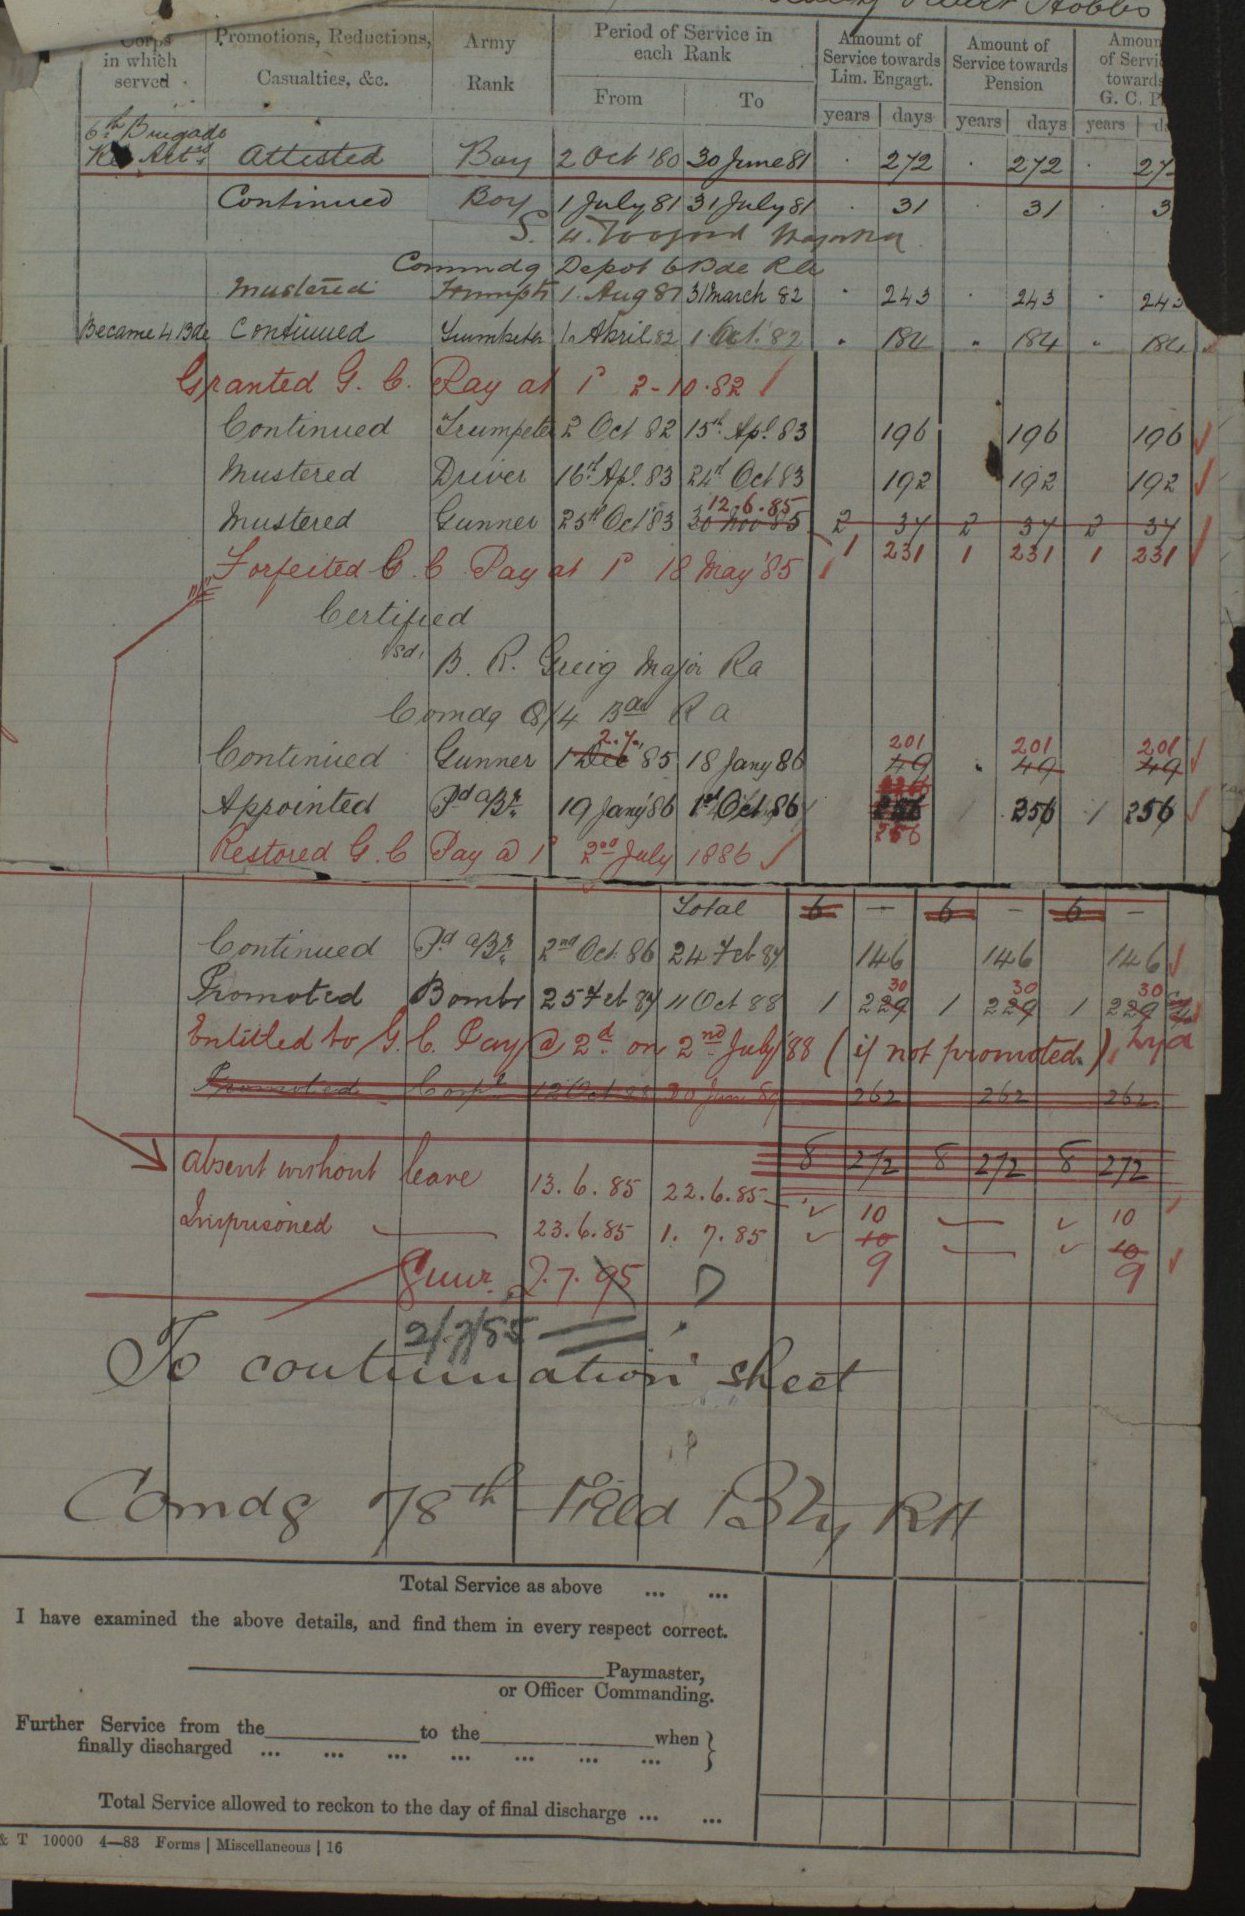 Hobbs
Corps in which served
Promotions, Reductions, Casualties, &c.
Army Rank
Period of Service in each Rank
From To
Amount of Service towards Lim. Engagt.
years days
Amount of Service towards Pension
years days
Amoun of Servi towards G. C. P
years da
6th Brigade
Attested Boy 2 Oct '80 30 June 81 272 272 27
Continued Boy 1 July 81 31 July 81 31 31 3
Commdg Depot 6 Bde RA
Mustered 1 Aug 81 31 March 82 243 243 243
Became 4 Bde Continued Trumpeter 1 April 82 1 Oct. 82 184 184 184
Granted G. C. Pay at 1d 2-10-82
Continued Trumpeter 2 Oct 82 15th Apl 83 196 196 196
Mustered Driver 16th Apl. 83 24th Oct 83 192 192 192
12.6.85
Mustered Gunner 25th Oct 83 30 Nov 85 2 37 2 37 2 37
1 231 1 231 1 231
Forfeited G. C Pay at 1d 18 May '85
Certified
Sd. B. R. Greig Major Ra
Comdg 8/4 Bde R A
2.7. 201 201 201
Continued Gunner 1 Dec '85 18 Jany 86 49 49 49
Appointed Pd a/Br 19 Jany '86 1st Oct 86 256 256 1 256
256
Restored G. C Pay @ 1d 2nd July 1886
Total 6 — 6 — 6 —
Continued Pd a/Br 2nd Oct. 86 24 Feb 87 146 146 146
30 30 30
Promoted Bombr 25 Feb 87 11 Oct 88 1 229 1 229 1 229
Entitled to G. C. Pay @ 2d. on 2nd July '88 (if not promoted)
Promoted Corpl 12 Oct 88 30 June 89 262 262 262
8 272 8 272 8 272
Absent without leave 13.6.85 22.6.85 10 10
Imprisoned 23.6.85 1.7.85 10 10
9 9
Gunr. 2.7.95
2/7/85
To continuation sheet
Comdg 78th Field Bty RA
Total Service as above ... ...
I have examined the above details, and find them in every respect correct.
Paymaster,
or Officer Commanding.
Further Service from the to the when }
finally discharged ... ... ... ... ... ... ...
Total Service allowed to reckon to the day of final discharge ... ...
& T 10000 4—83 Forms | Miscellaneous | 16